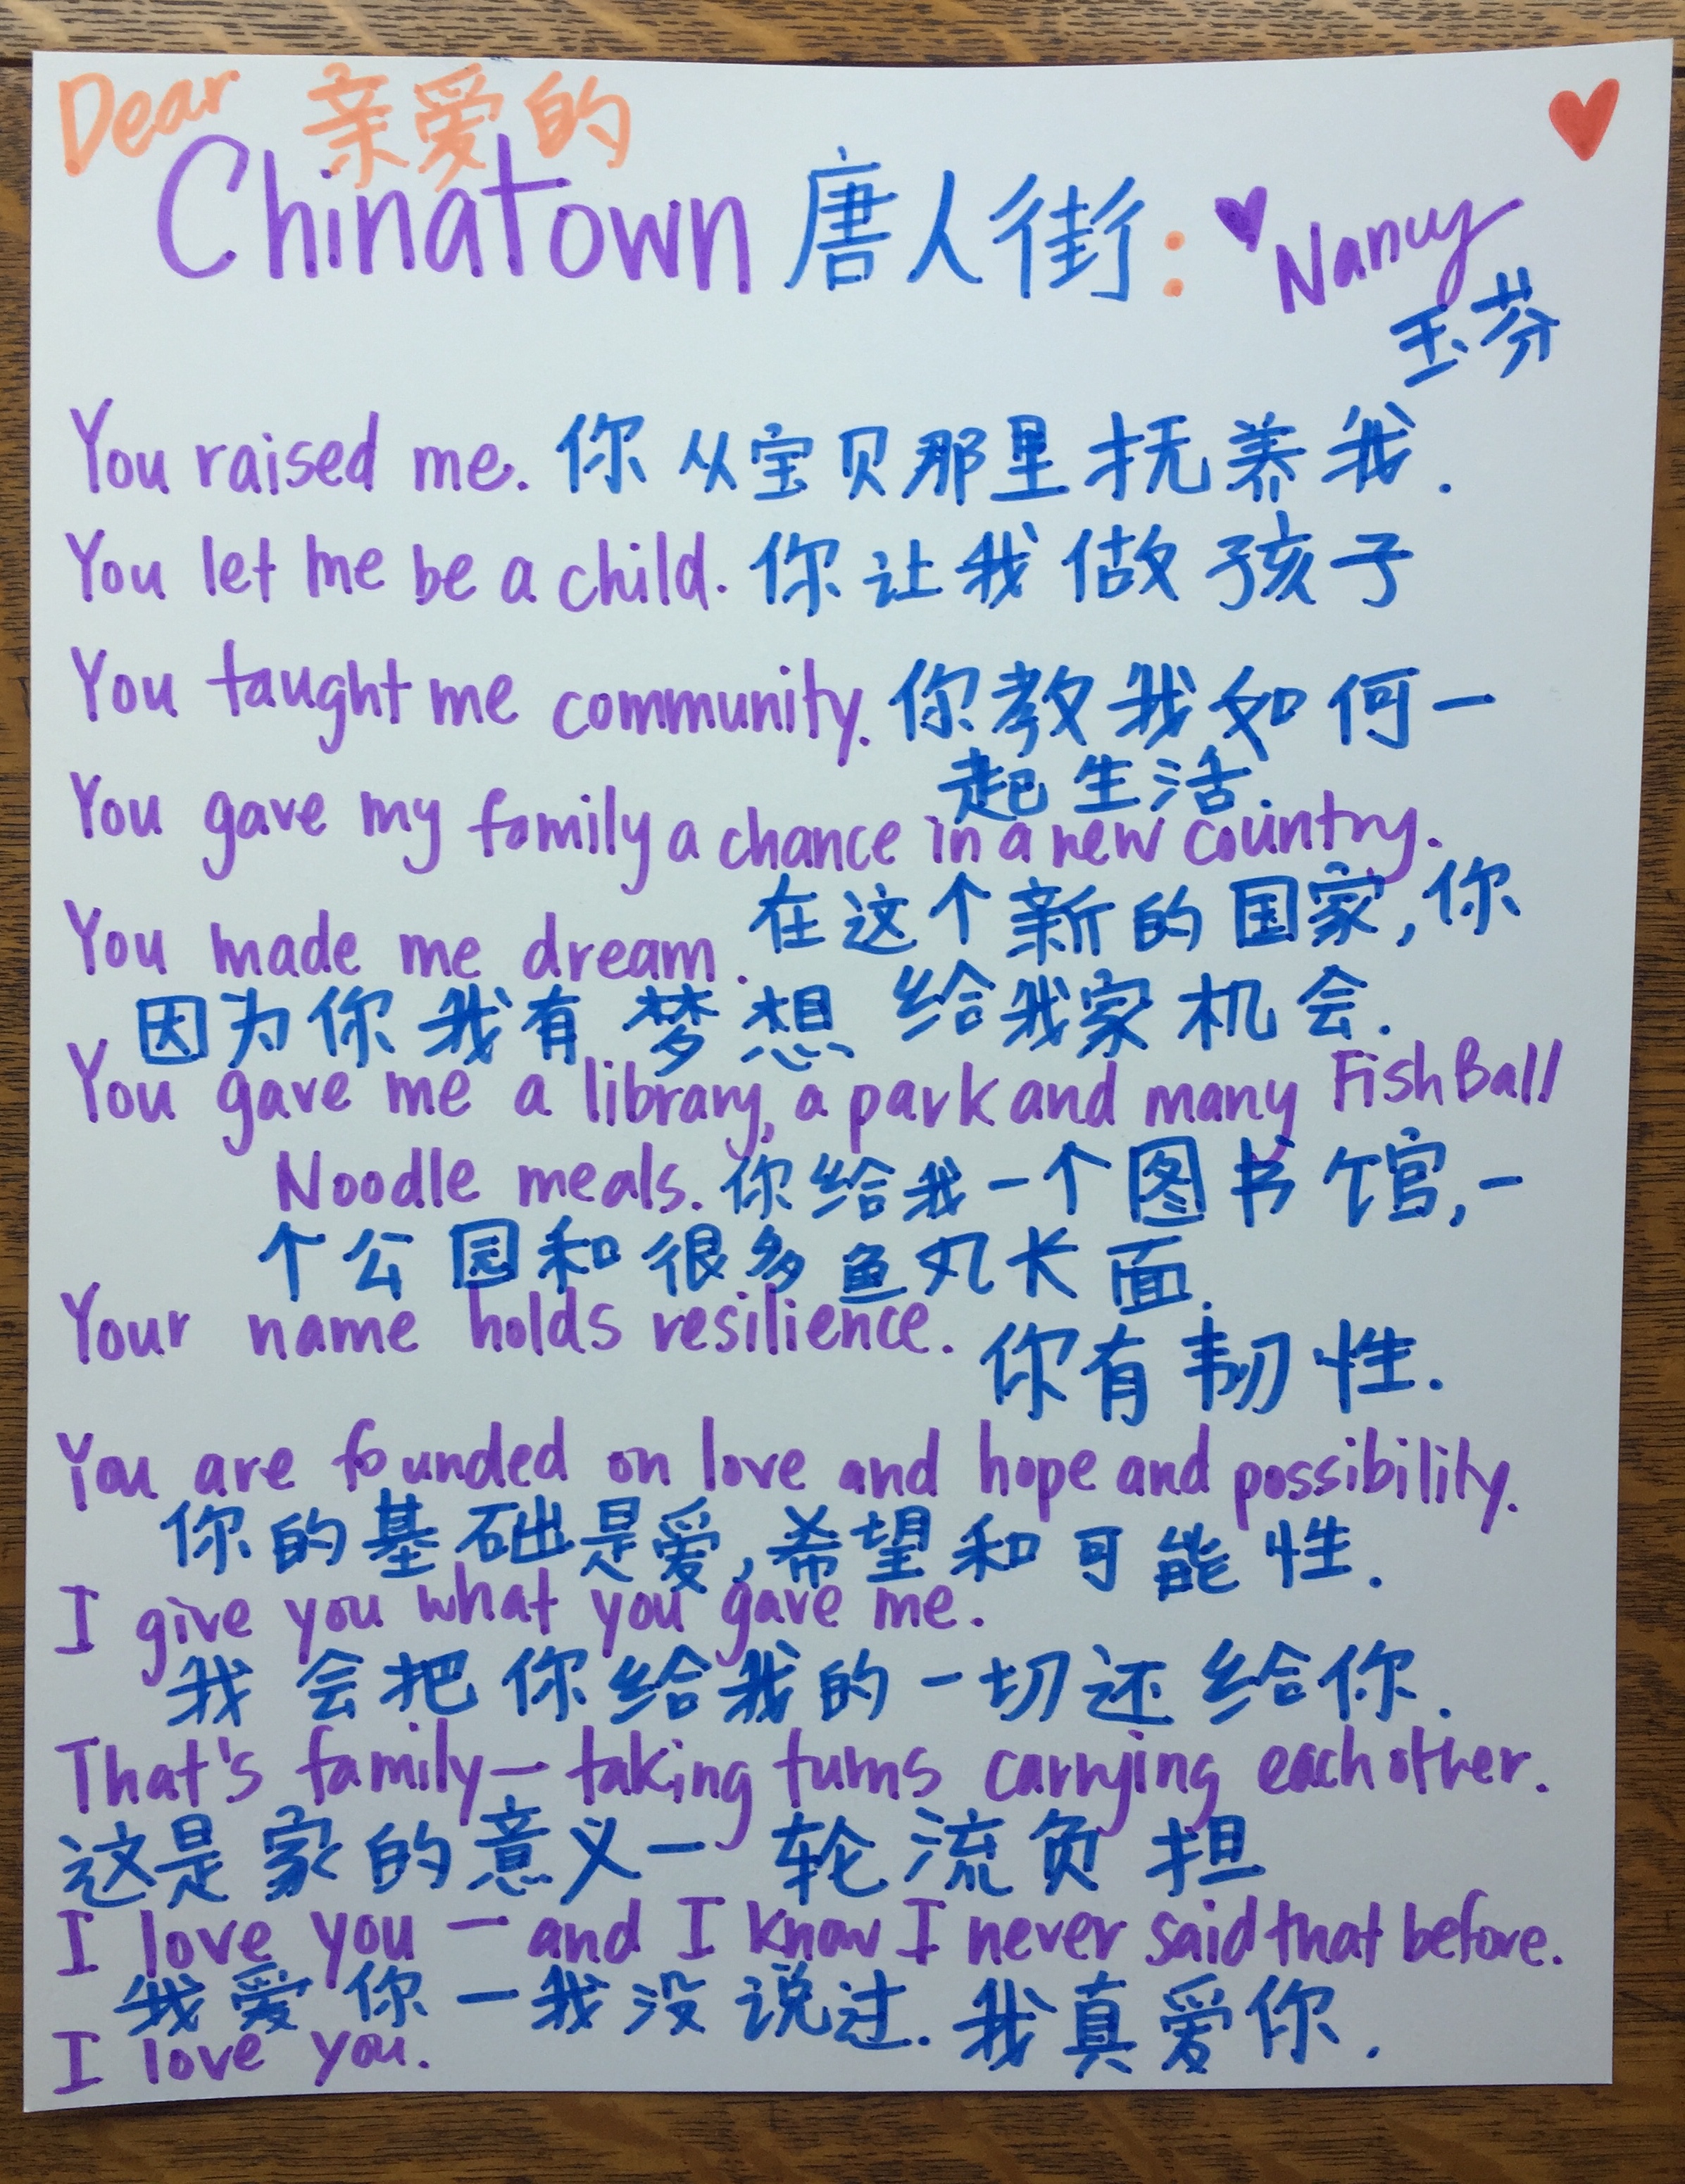 Dear 亲爱的
Chinatown 唐人街: Nancy
玉芬
You raised me. 你从宝贝那里抚养我.
You let me be a child. 你让我做孩子
You taught me community. 你教我如何一
起生活.
You gave my family a chance in a new country.
在这个新的国家,你
You made me dream.
给我家机会.
因为你我有梦想
You gave me a library, a park and many Fish Ball
Noodle meals. 你给我一个图书馆,一
个公园和很多鱼丸长面.
Your name holds resilience.
你有韧性.
You are founded on love and hope and possibility.
你的基础是爱,希望和可能性.
I give you what you gave me.
我会把你给我的一切还给你.
That's family—taking turns carrying each other.
这是家的意义— 轮流负担
I love you — and I know I never said that before.
我爱你 — 我没说过. 我真爱你.
I love you.